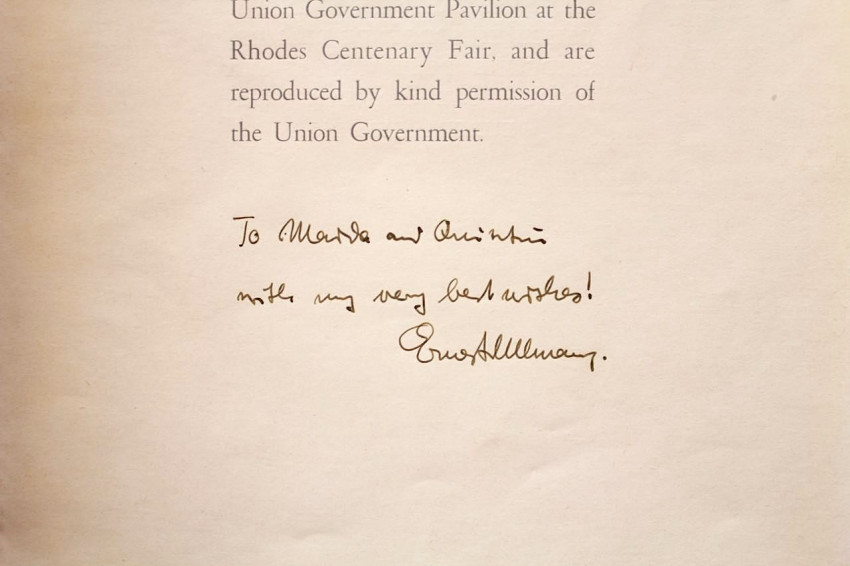 Union Government Pavilion at the
Rhodes Centenary Fair, and are
reproduced by kind permission of
the Union Government.
To Maida and Quintin
with my very best wishes!
Ernest Ullmann.